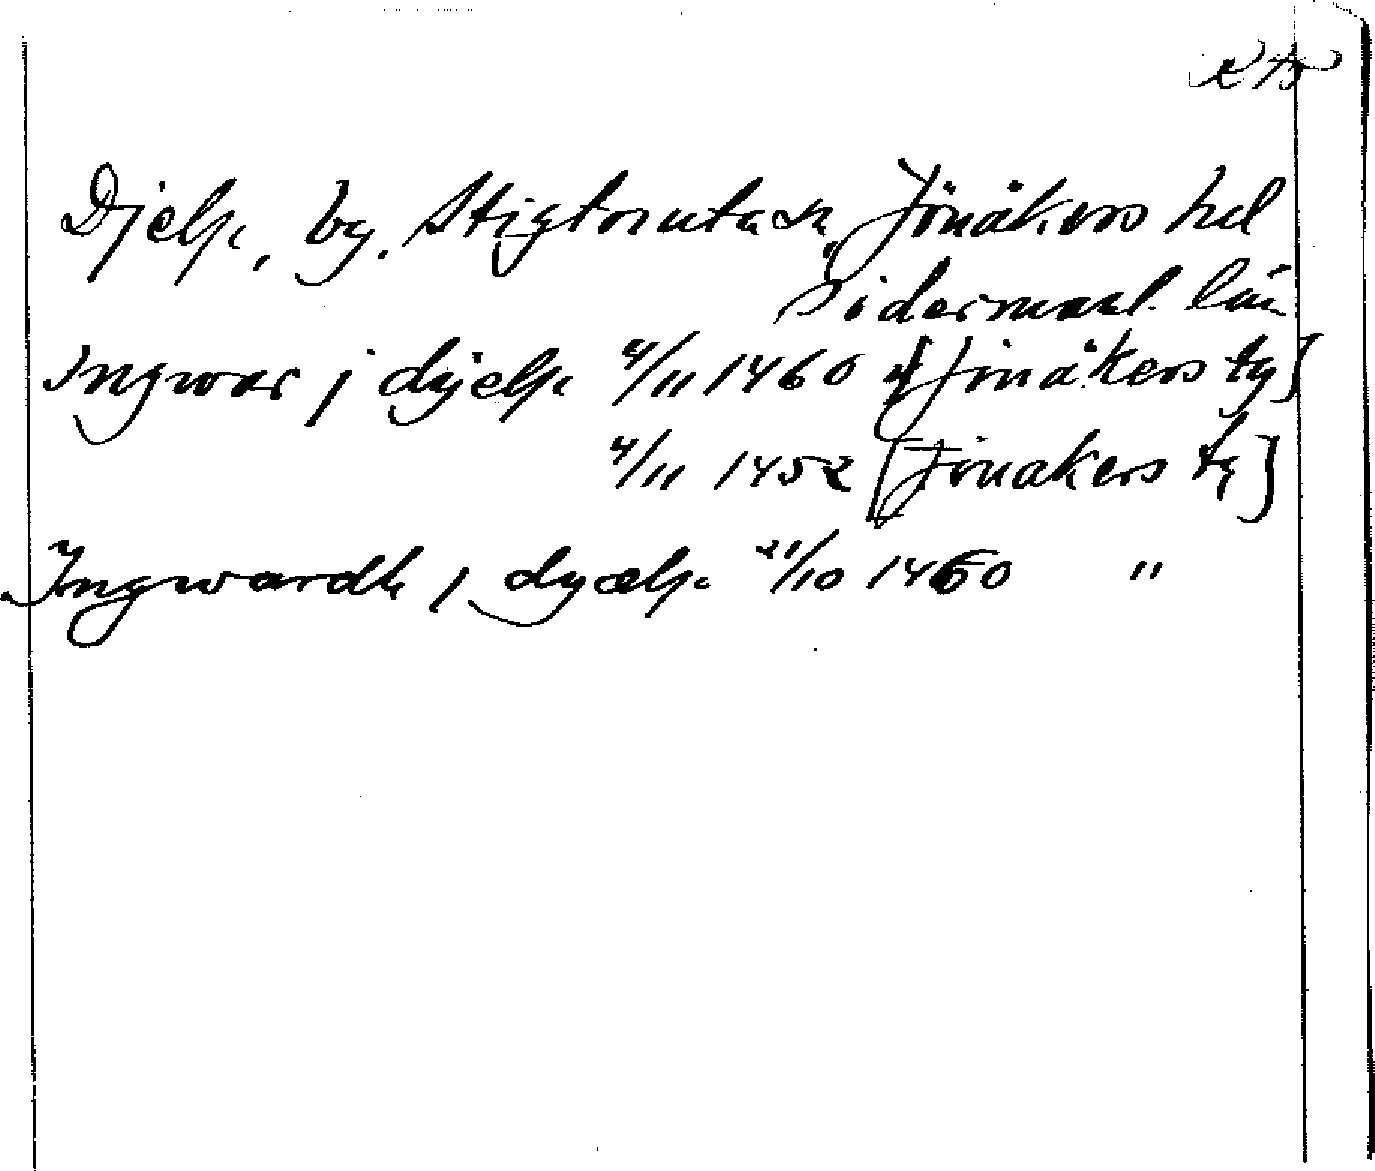 Djelp, by. Stigtomta sn, Jönåkers hd
Södermanl. län
Ingwar j dyelp 4/11 1460 [Jönåkers tg]
4/11 1452 [Jönakers tg]
Ingwardh j dyælp 21/10 1460 "